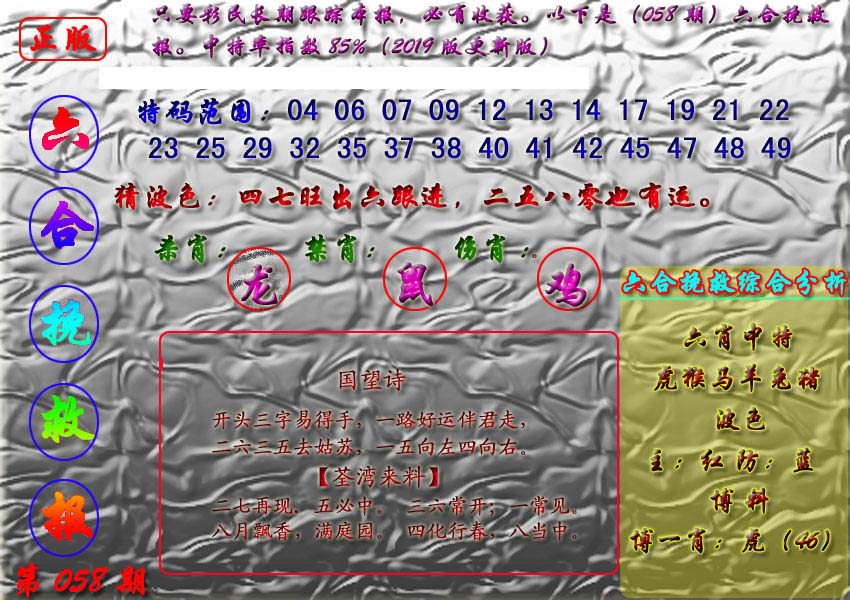 正版
只要彩民长期跟踪本报，必有收获。以下是（058期）六合挽救
报。中特率指数85%（2019版更新版）
六合挽救报
第058期
特码范围：04 06 07 09 12 13 14 17 19 21 22
23 25 29 32 35 37 38 40 41 42 45 47 48 49
猜波色：四七旺出六跟进，二五八零也有运。
杀肖：龙 禁肖：鼠 伤肖：鸡
国望诗
开头三字易得手，一路好运伴君走，
二六三五去姑苏，一五向左四向右。
【荃湾来料】
二七再现．五必中。 三六常开；一常见。
八月飘香，满庭园。 四化行春，八当中。
六合挽救综合分析
六肖中特
虎猴马羊兔猪
波色
主：红防：蓝
博料
博一肖：虎（46）